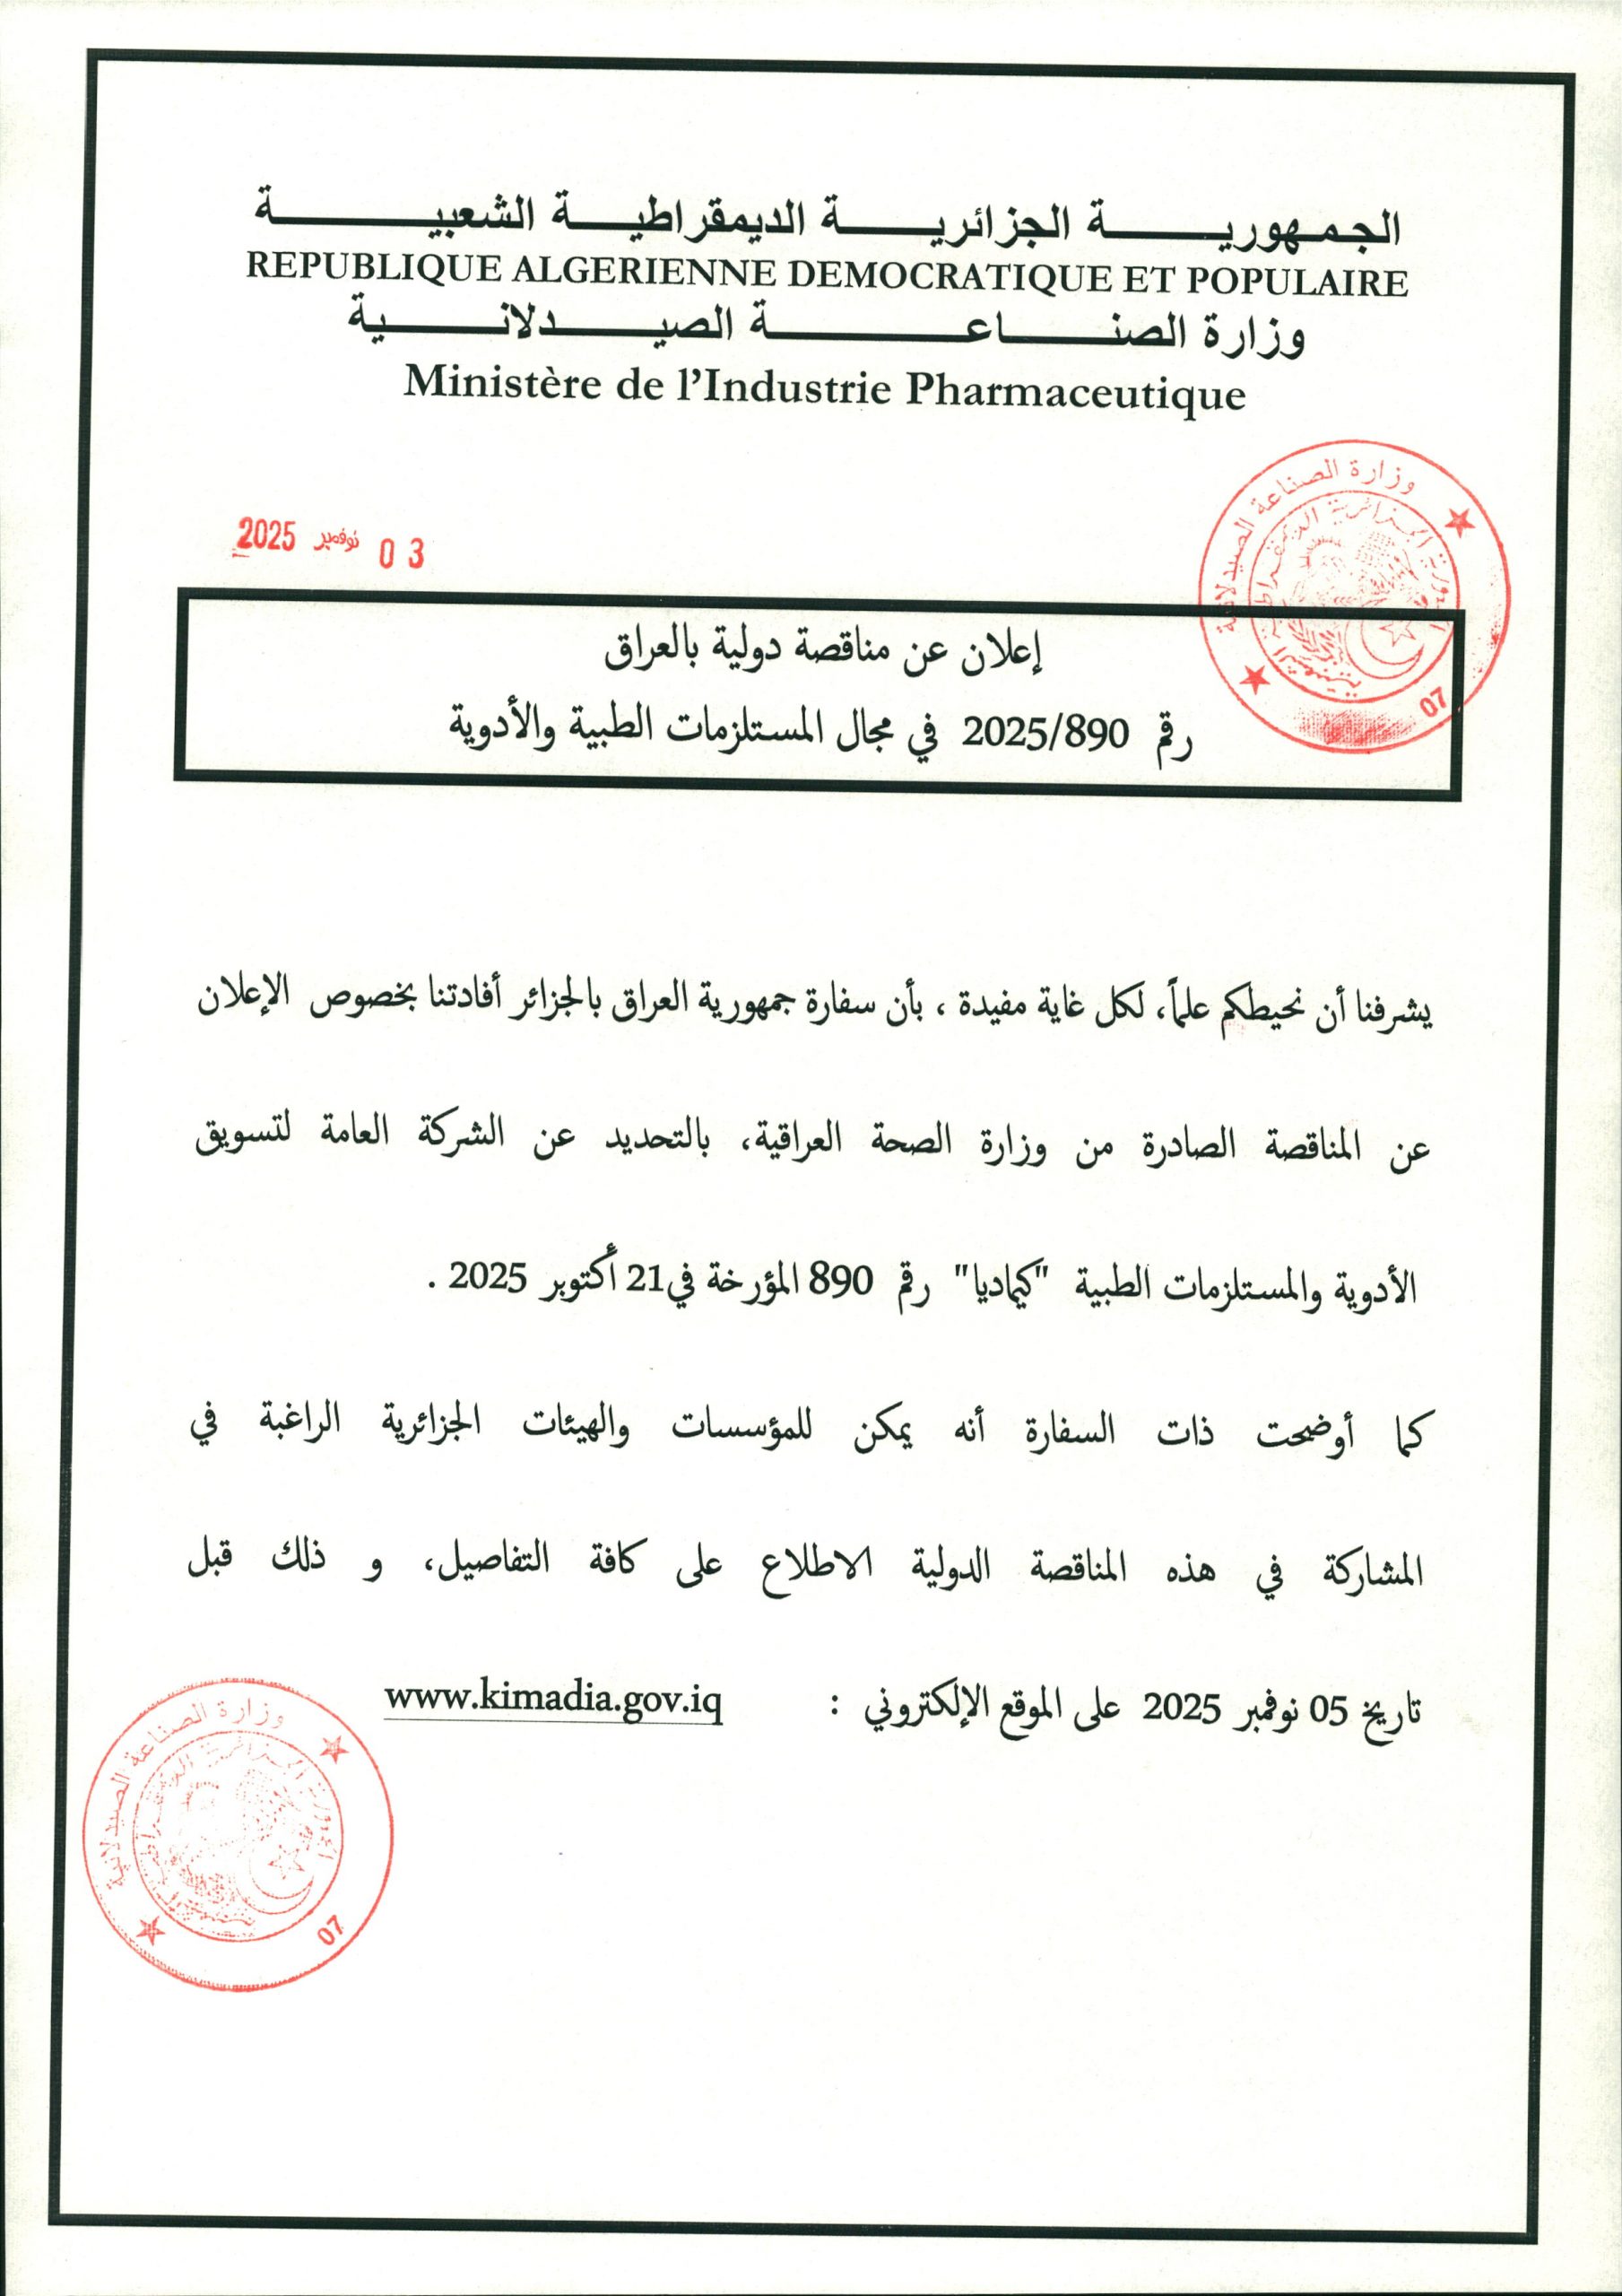 الجمهورية الجزائرية الديمقراطية الشعبية
REPUBLIQUE ALGERIENNE DEMOCRATIQUE ET POPULAIRE
وزارة الصناعة الصيدلانية
Ministère de l'Industrie Pharmaceutique
03 نوفمبر 2025
وزارة الصناعة الصيدلانية
07
إعلان عن مناقصة دولية بالعراق
رقم 2025/890 في مجال المستلزمات الطبية والأدوية
يشرفنا أن نحيطكم علماً، لكل غاية مفيدة ، بأن سفارة جمهورية العراق بالجزائر أفادتنا بخصوص الإعلان
عن المناقصة الصادرة من وزارة الصحة العراقية، بالتحديد عن الشركة العامة لتسويق
الأدوية والمستلزمات الطبية "كيماديا" رقم 890 المؤرخة في21 أكتوبر 2025 .
كما أوضحت ذات السفارة أنه يمكن للمؤسسات والهيئات الجزائرية الراغبة في
المشاركة في هذه المناقصة الدولية الاطلاع على كافة التفاصيل، و ذلك قبل
تاريخ 05 نوفمبر 2025 على الموقع الإلكتروني : www.kimadia.gov.iq
وزارة الصناعة الصيدلانية
07